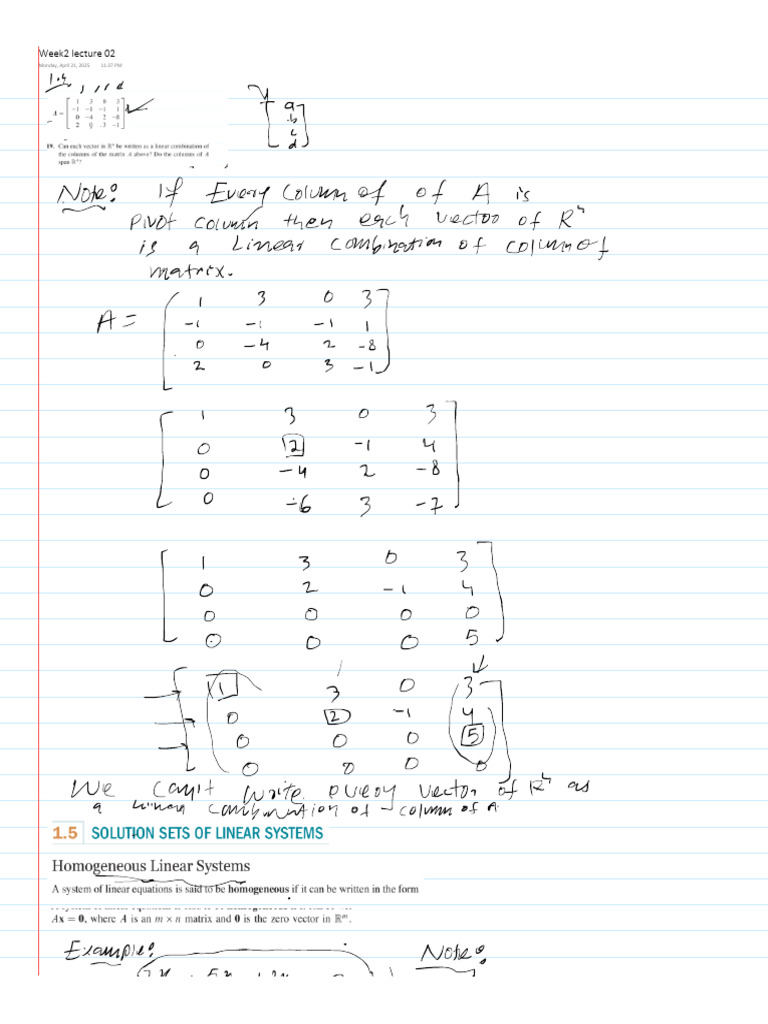 Week2 lecture 02
Monday, April 21, 2025 11:37 PM
1.4
A = [ 1 3 0 3
-1 -1 -1 1
0 -4 2 -8
2 0 3 -1 ]
a
b
c
d
19. Can each vector in ℝ⁴ be written as a linear combination of
the columns of the matrix A above? Do the columns of A
span ℝ⁴?
Note: If Every Column of of A is
Pivot column then each vector of R⁴
is a Linear Combination of column of
matrix.
A = [ 1 3 0 3
-1 -1 -1 1
0 -4 2 -8
2 0 3 -1 ]
[ 1 3 0 3
0 2 -1 4
0 -4 2 -8
0 -6 3 -7 ]
[ 1 3 0 3
0 2 -1 4
0 0 0 0
0 0 0 5 ]
[ 1 3 0 3
0 2 -1 4
0 0 0 5
0 0 0 0 ]
We can't write every vector of R⁴ as
a linear combination of column of A
1.5 SOLUTION SETS OF LINEAR SYSTEMS
Homogeneous Linear Systems
A system of linear equations is said to be homogeneous if it can be written in the form
Ax = 0, where A is an m × n matrix and 0 is the zero vector in ℝᵐ.
Example: Note: